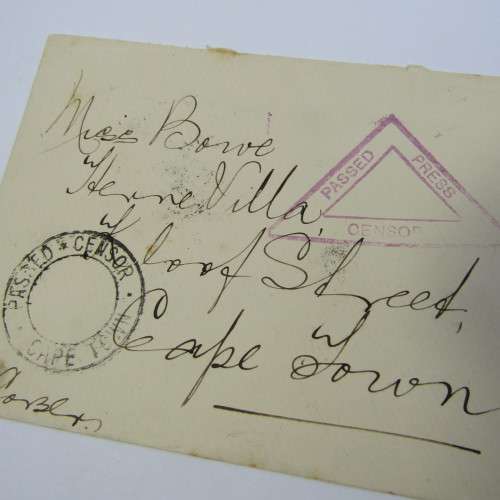 Miss Bowe
"Herne Villa,
Kloof Street,
Cape Town
PASSED PRESS
CENSOR
PASSED * CENSOR
CAPE TOWN